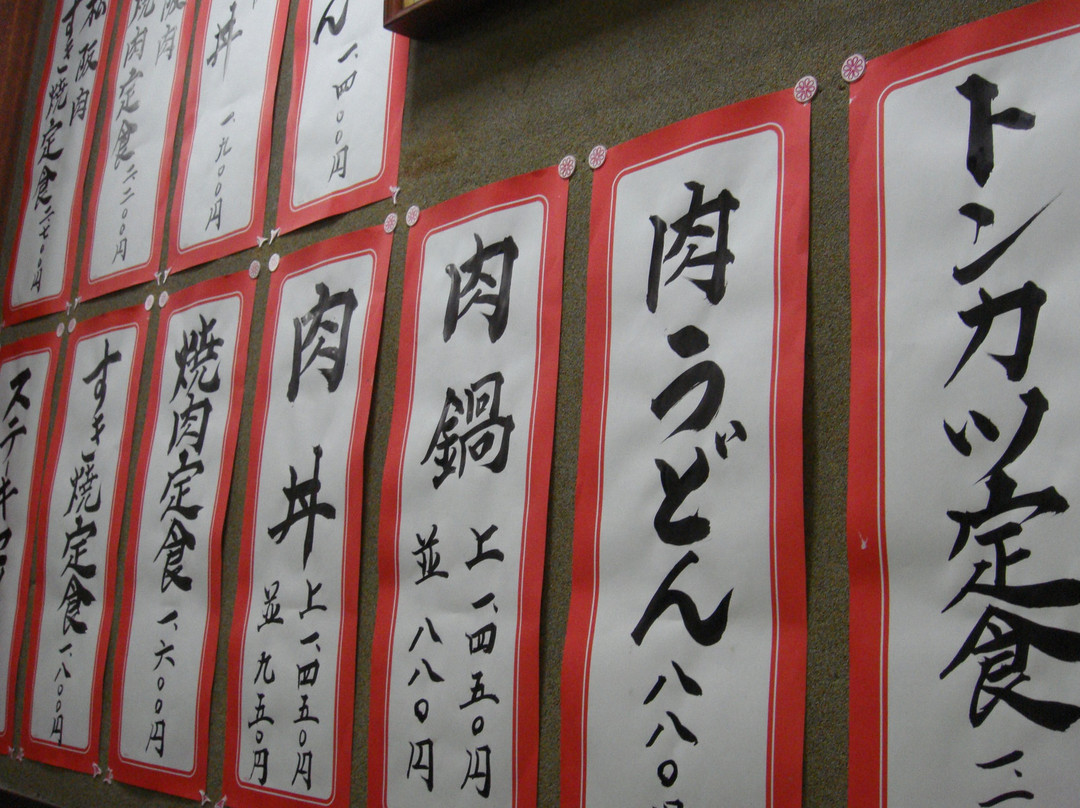 トンカツ定食 一、
肉うどん 八八〇
肉鍋
上 一、四五〇円
並 八八〇円
肉丼
上 一、四五〇円
並 九五〇円
焼肉定食 一、六〇〇円
すき焼定食 一、八〇〇円
ステーキ
ん 一、四〇〇円
丼 一、九〇〇円
阪肉
焼肉定食 二、二〇〇円
松阪肉
すき焼定食 二、七〇〇円